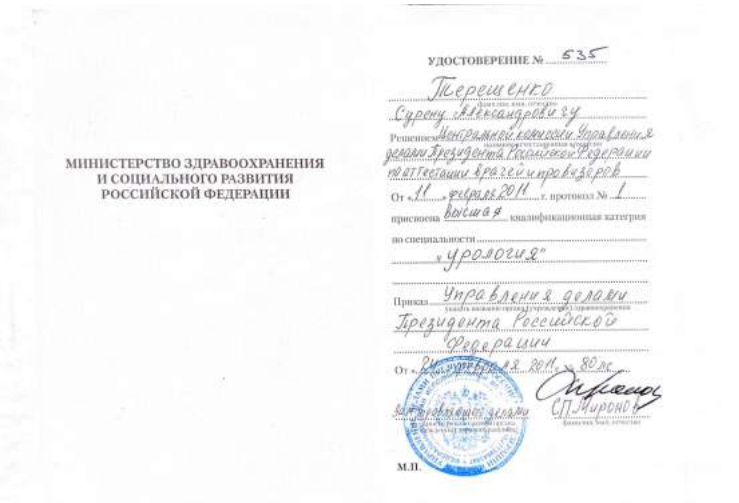 МИНИСТЕРСТВО ЗДРАВООХРАНЕНИЯ
И СОЦИАЛЬНОГО РАЗВИТИЯ
РОССИЙСКОЙ ФЕДЕРАЦИИ
УДОСТОВЕРЕНИЕ № 535
Терещенко
фамилия, имя, отчество
Сурену Александровичу
Решением Центральной комиссии Управления
делами Президента Российской Федерации
по аттестации врачей и провизоров
От «11» февраля 2011 г. протокол № 1
присвоена высшая квалификационная категрия
по специальности
"урология"
Приказ Управления делами
указать название органа (учреждения) здравоохранения
Президента Российской
Федерации
От «24 2011 г. № 80лс
Зам. управляющего делами С.П.Миронов
фамилия, имя, отчество
М.П.